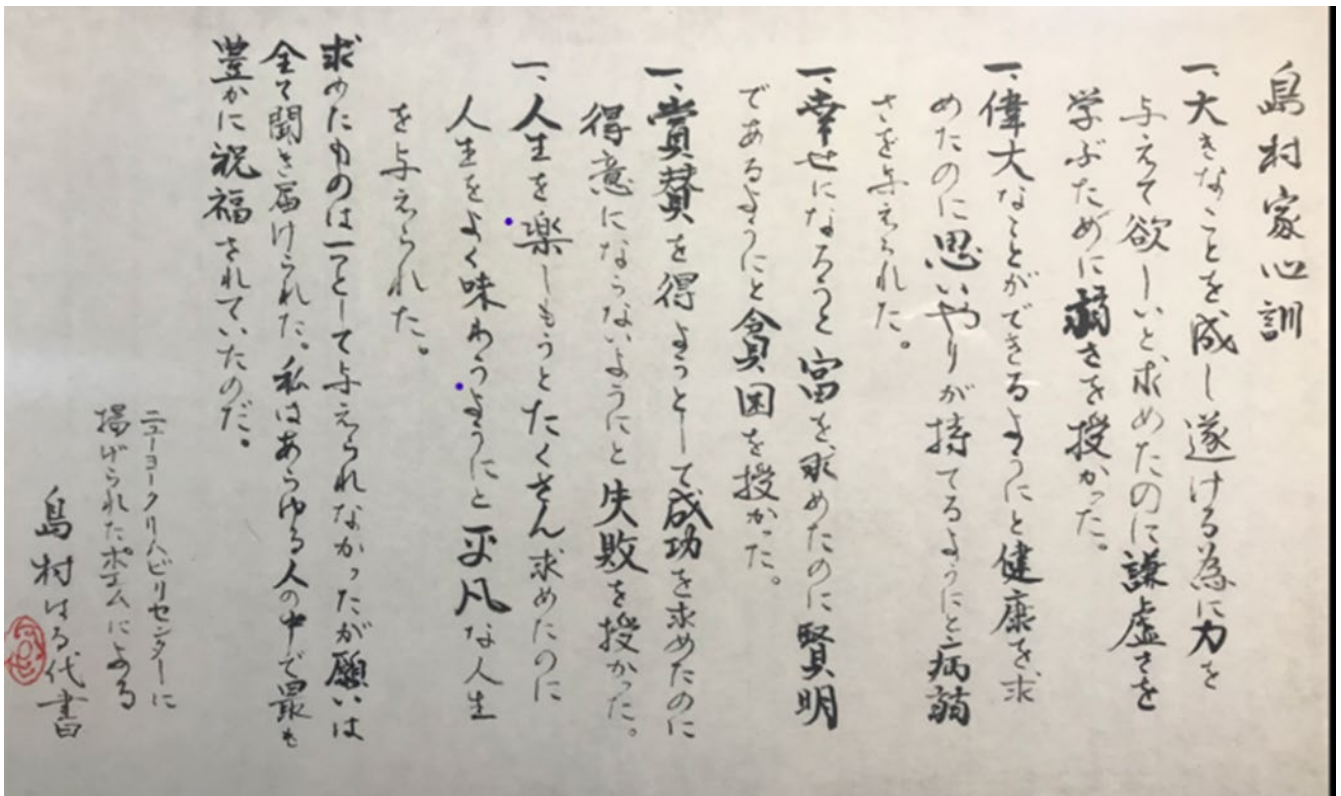 島村家心訓
一、大きなことを成し遂げる為に力を
与えて欲しいと求めたのに謙虚さを
学ぶために弱さを授かった。
一、偉大なことができるようにと健康を求
めたのに思いやりが持てるようにと病弱
さを与えられた。
一、幸せになろうと富を求めたのに賢明
であるようにと貧困を授かった。
一、賞賛を得ようとして成功を求めたのに
得意にならないようにと失敗を授かった。
一、人生を楽しもうとたくさん求めたのに
人生をよく味わうようにと平凡な人生
を与えられた。
求めたものは一つとして与えられなかったが願いは
全て聞き届けられた。私はあらゆる人の中で最も
豊かに祝福されていたのだ。
ニューヨークリハビリセンターに
掲げられたポエムによる
島村はる代書